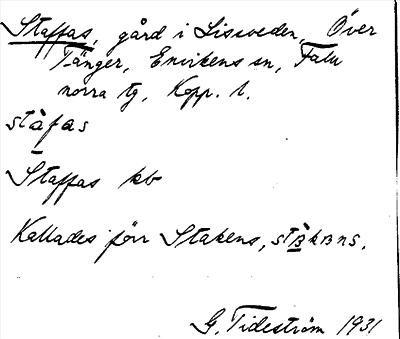 Staffas, gård i Lissveden, Över
Tänger, Envikens sn, Falu
norra tg, Kopp. l.
stàfas
Staffas kb
Kallades förr Stakens,
G. Tideström 1931